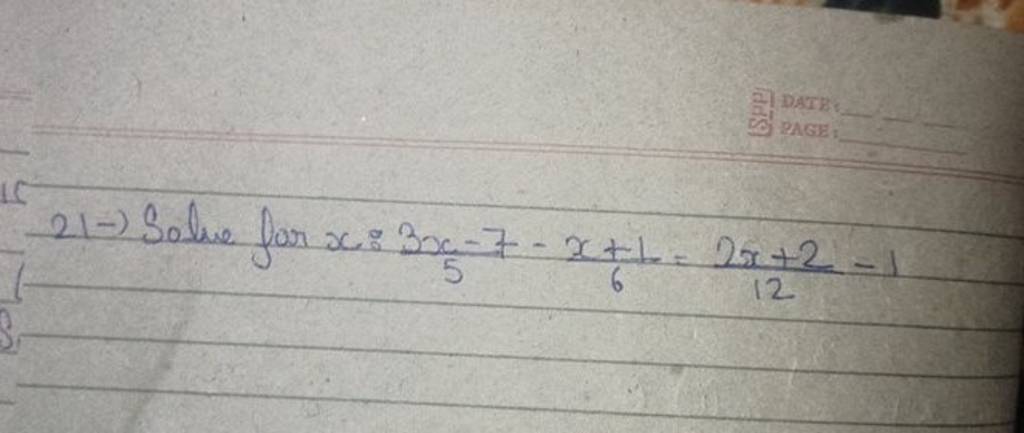 SPP DATE:
PAGE:
21→ Solve for x: 3x-7/5 - x+1/6 = 2x+2/12 - 1